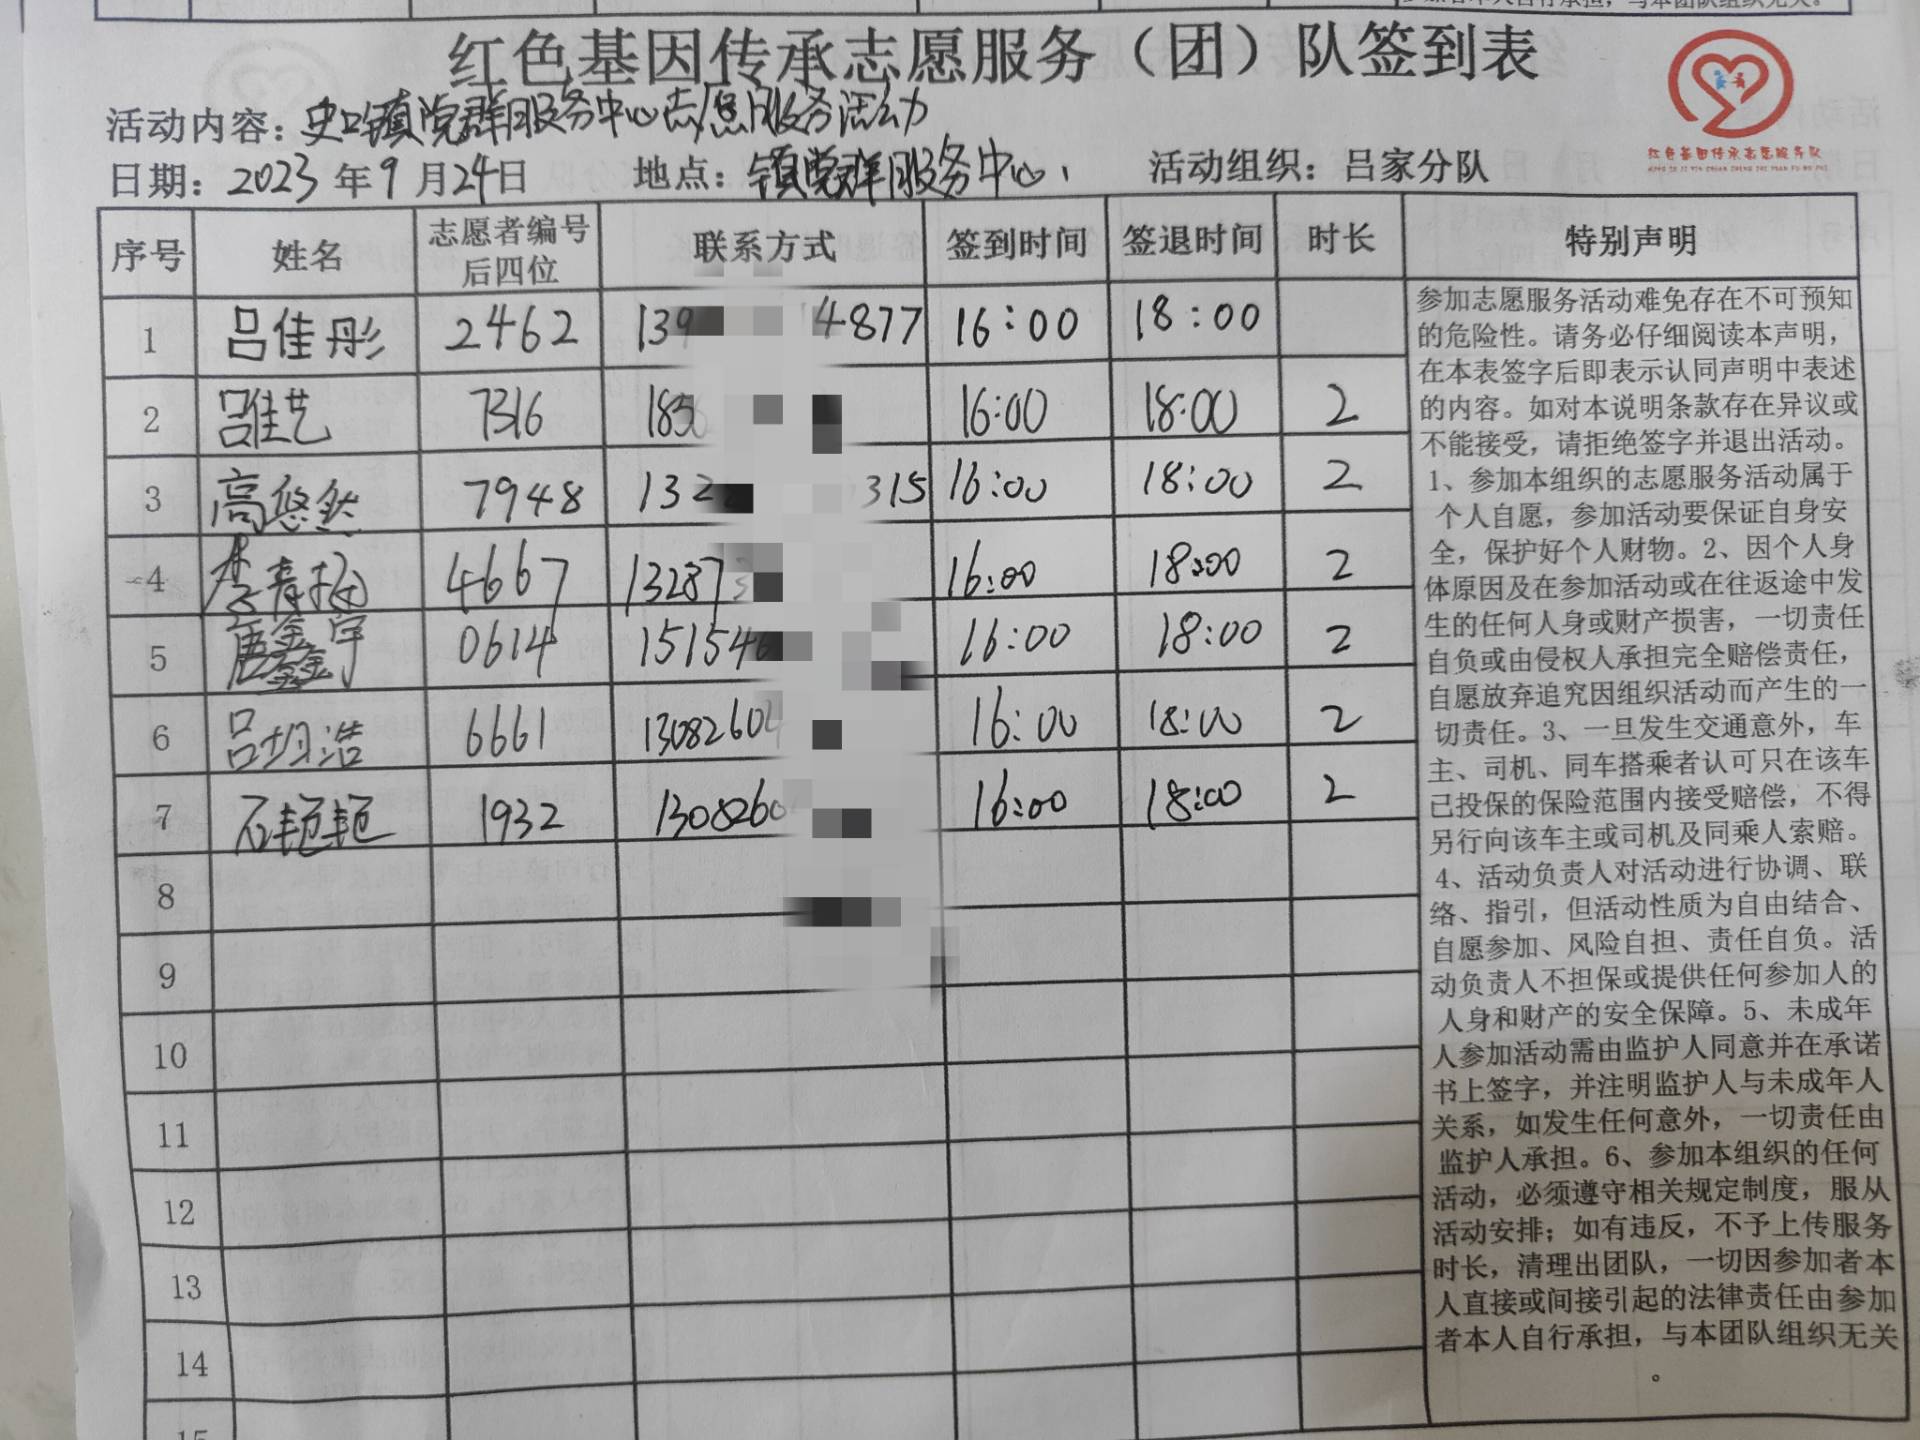 红色基因传承志愿服务（团）队签到表
活动内容：史口镇党群服务中心志愿服务活动
日期：2023年9月24日 地点：镇党群服务中心、 活动组织：吕家分队
红色基因传承志愿服务队
序号 姓名 志愿者编号后四位 联系方式 签到时间 签退时间 时长 特别声明
1 吕佳彤 2462 139 4877 16:00 18:00
2 吕佳艺 7316 185 16:00 18:00 2
3 高悠然 7948 132 315 16:00 18:00 2
4 李青 4667 13287 16:00 18:00 2
5 唐鑫宇 0614 15154 16:00 18:00 2
6 吕浩 6661 1308260 16:00 18:00 2
7 石艳艳 1932 1308260 16:00 18:00 2
8
9
10
11
12
13
14
15
参加志愿服务活动难免存在不可预知
的危险性。请务必仔细阅读本声明，
在本表签字后即表示认同声明中表述
的内容。如对本说明条款存在异议或
不能接受，请拒绝签字并退出活动。
1、参加本组织的志愿服务活动属于
个人自愿，参加活动要保证自身安
全，保护好个人财物。2、因个人身
体原因及在参加活动或在往返途中发
生的任何人身或财产损害，一切责任
自负或由侵权人承担完全赔偿责任，
自愿放弃追究因组织活动而产生的一
切责任。3、一旦发生交通意外，车
主、司机、同车搭乘者认可只在该车
已投保的保险范围内接受赔偿，不得
另行向该车主或司机及同乘人索赔。
4、活动负责人对活动进行协调、联
络、指引，但活动性质为自由结合、
自愿参加、风险自担、责任自负。活
动负责人不担保或提供任何参加人的
人身和财产的安全保障。5、未成年
人参加活动需由监护人同意并在承诺
书上签字，并注明监护人与未成年人
关系，如发生任何意外，一切责任由
监护人承担。6、参加本组织的任何
活动，必须遵守相关规定制度，服从
活动安排；如有违反，不予上传服务
时长，清理出团队，一切因参加者本
人直接或间接引起的法律责任由参加
者本人自行承担，与本团队组织无关
。